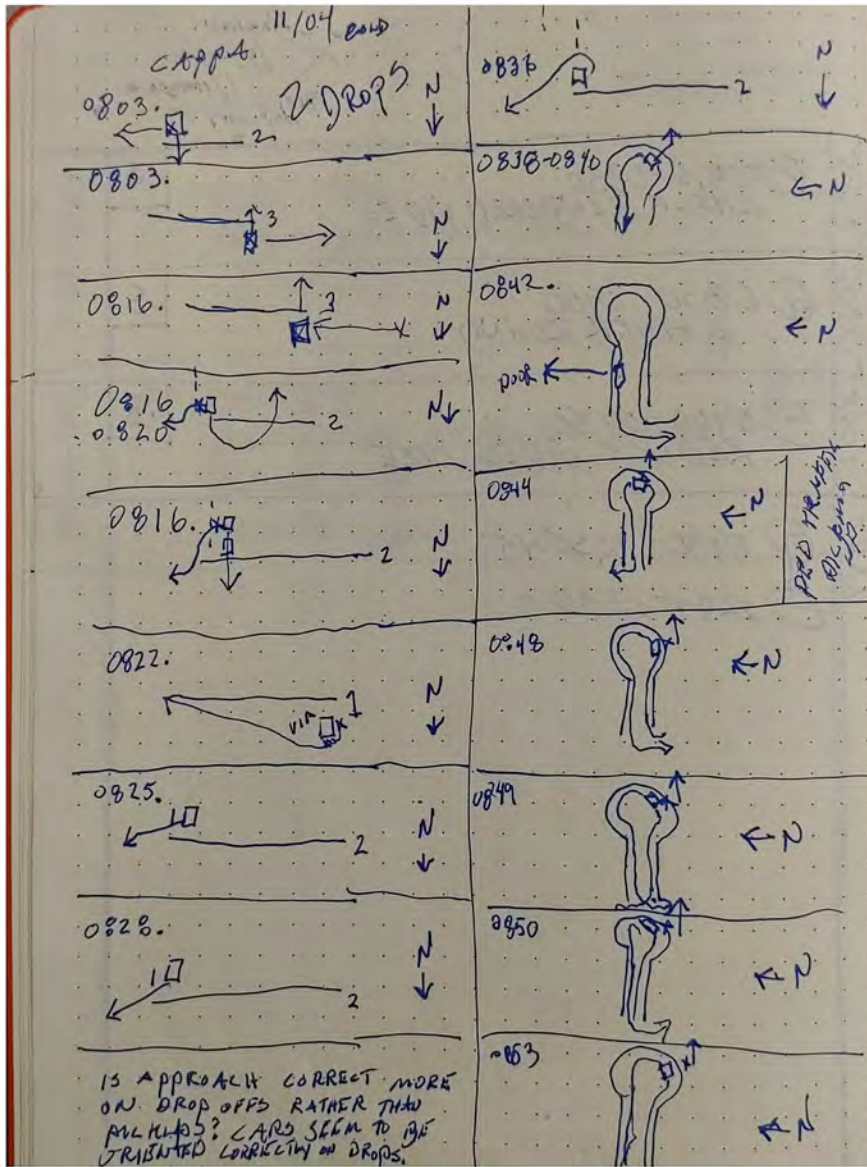 11/04 COLD
CAPPA.
2 DROPS
0803.
2
N
0803.
3
N
0816.
3
N
0816
0820
2
N
0816.
2
N
0822.
1
VIA
N
0825.
2
N
0828.
2
N
IS APPROACH CORRECT MORE
ON DROP OFFS RATHER THAN
PICKUPS? CARS SEEM TO BE
ORIENTED CORRECTLY ON DROPS.
0836
2
N
0838-0840
N
0842.
DOOR
N
0844
N
PED
0848
N
0849
N
0850
N
0853
N